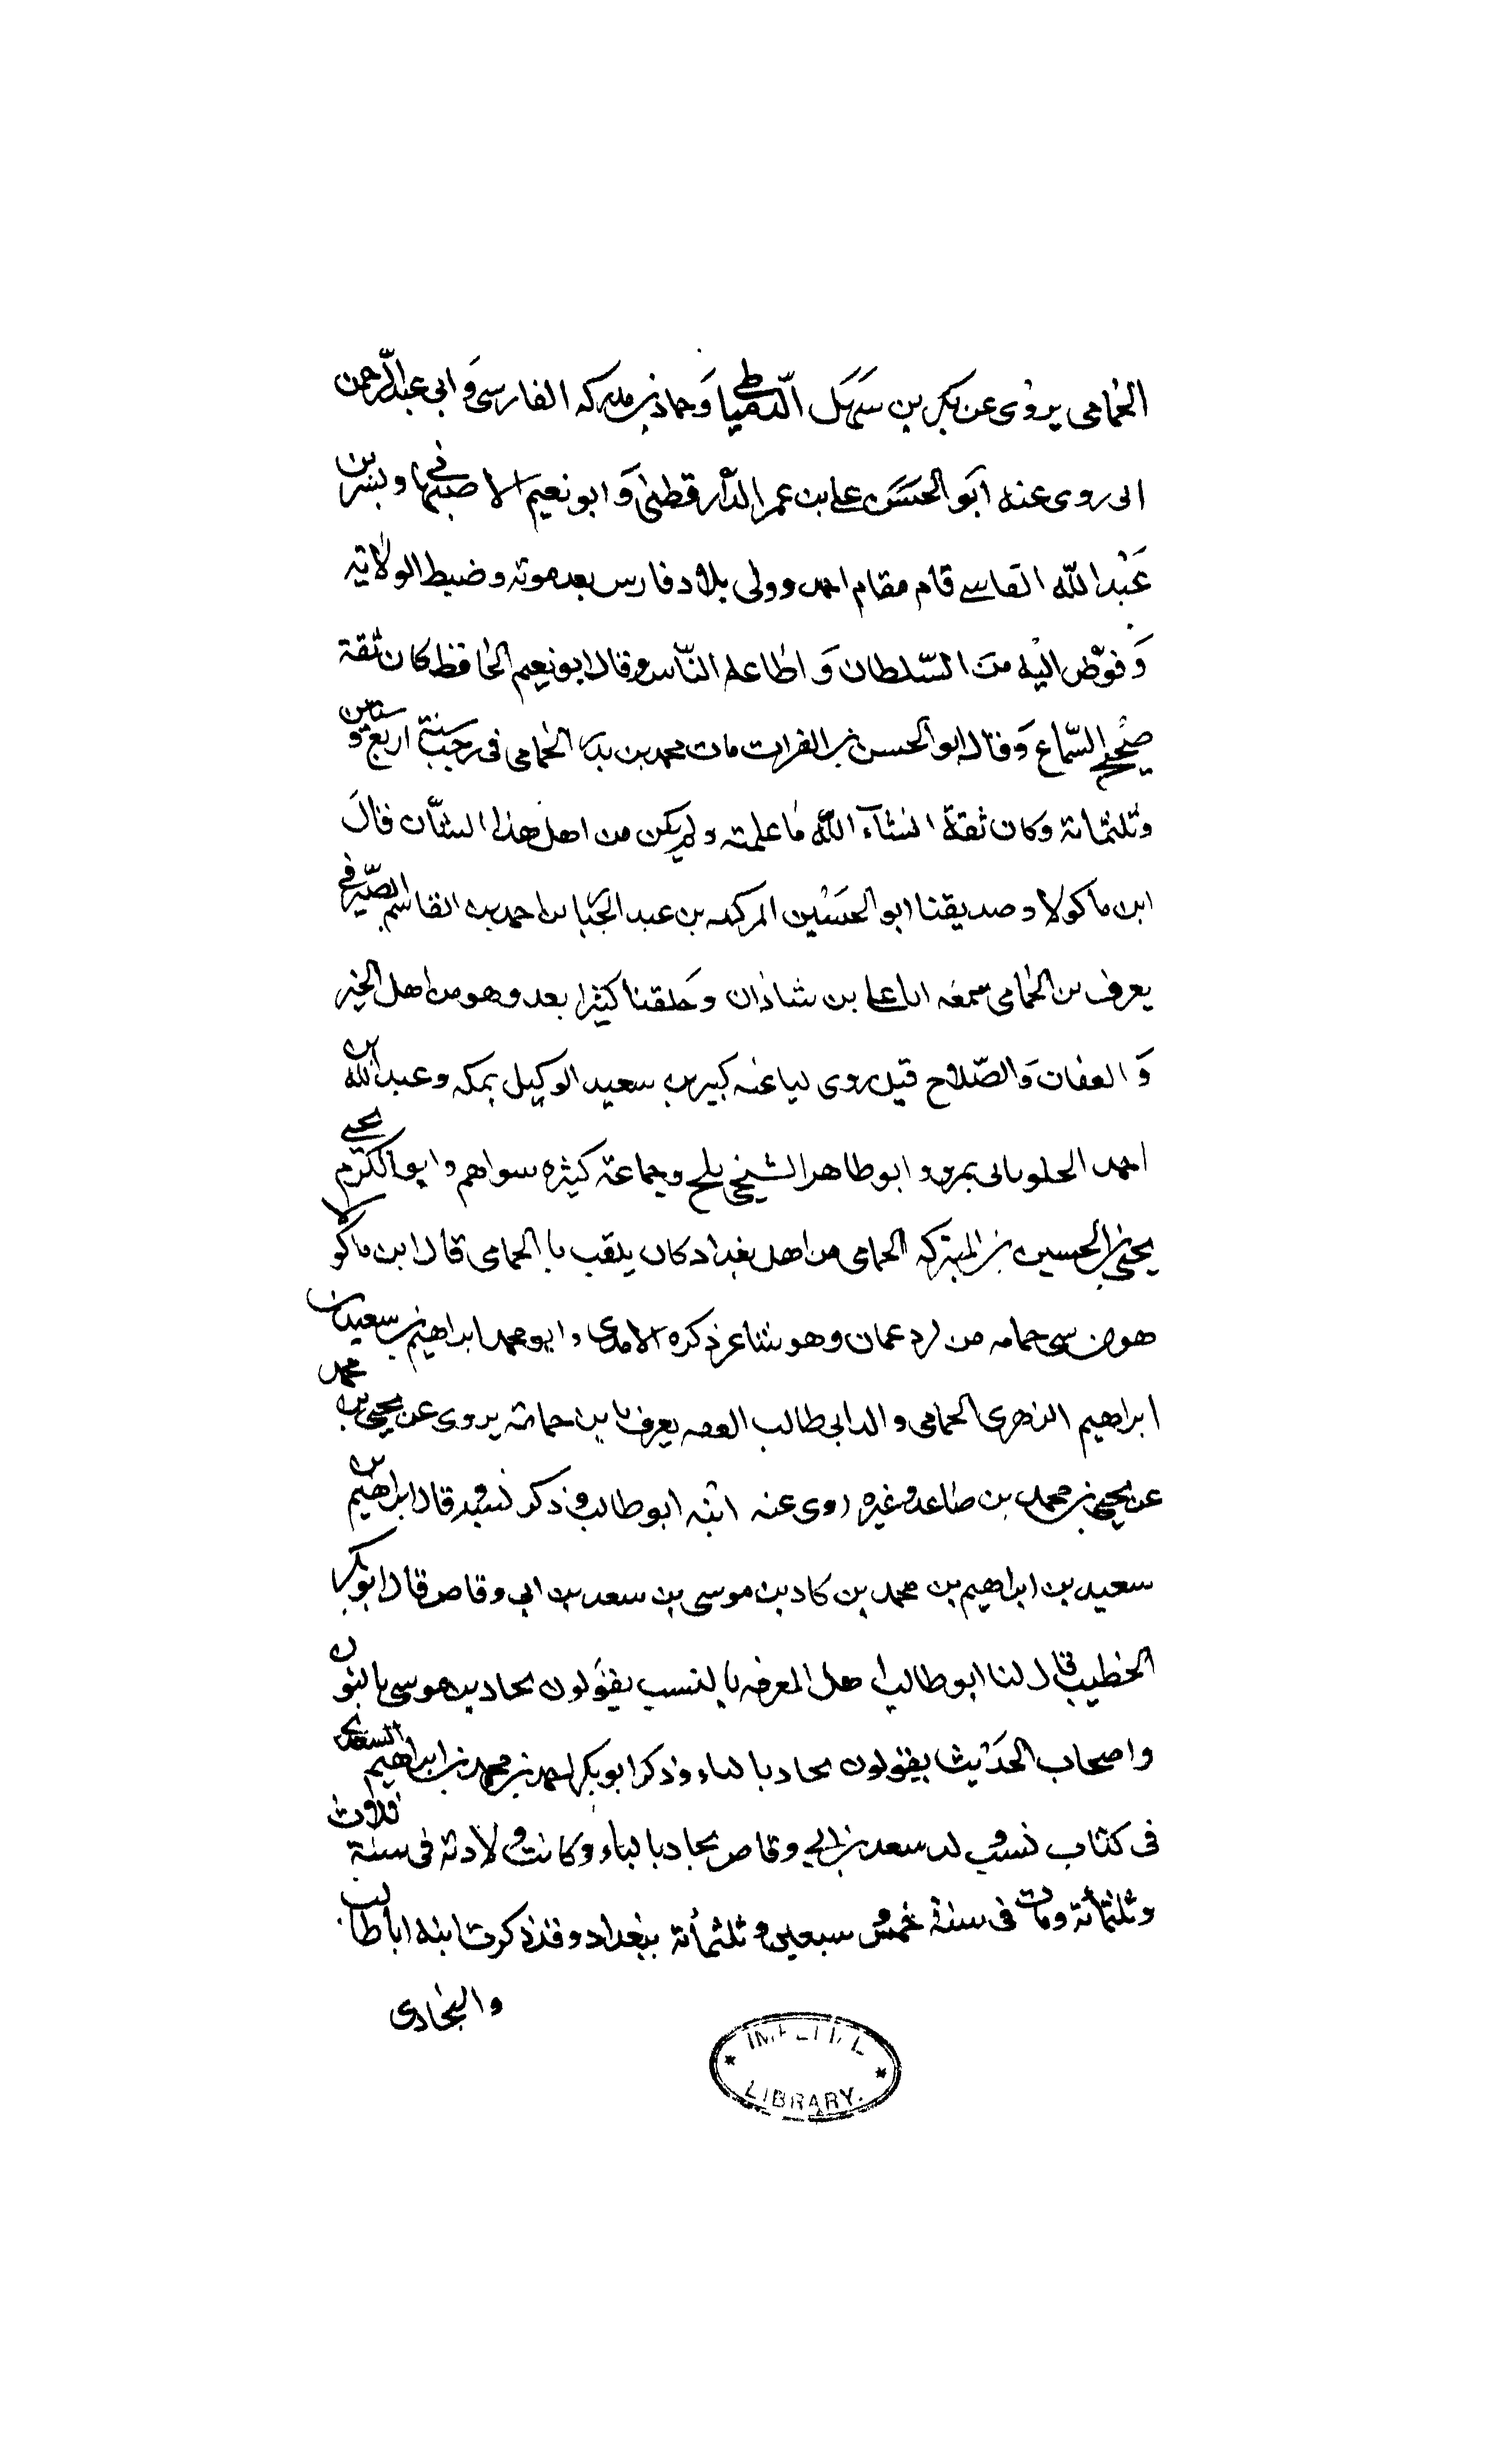 الحمامى يروى عن بكر بن سهل الدمياطى و حماد بن مدركه الفارسى و ابى عبدالرحمن
روى عنه ابو الحسن على بن عمر الدارقطنى و ابو نعيم الاصبهانى و بشر بن
عبدالله القاسى قام مقام احمد و ولى بلاد فارس بعد موته و ضبط الولاتيه
و فوض اليه من السلطان و اطاعه الناس وقال ابو نعيم الحافظ كان ثقة
صحيح السماع و قال ابو الحسن بن الفرات مات محمد بن بدر الحمامى فى رجب سنة اربع و ستين
و ثلثمائة وكان ثقة انشآء الله ما علمته و لم يكن من اهل هذا الشأن قال
ابن ماكولا و صديقنا ابو الحسين المبارك بن عبد الجبار بن احمد بن القاسم الصيرفى
يعرف بن الحمامى سمع ابا على بن شاذان و خلقنا كثيرا بعد و هو من اهل الخير
و العفاف و الصلاح قيل روى ليا عنه كبير بن سعيد الوكيل بمكه و عبدالله بن
احمد الحلوانى بمرو و ابو طاهر الشيخى بلخ و جماعة كثيره سواهم و ابو الكرم يحيى
يحيى بن الحسين بن المبتركه الحمامى من اهل بغداد كان يلقب با الحمامى قال ابن ماكولا
هو من بنى حمامه من ازد عمان و هو شاعر ذكره الامدى و ابو محمد ابراهيم بن سعيد بن
ابراهيم الزهرى الحمامى والد ابى طالب الفقيه يعرف با بن حمامة يروى عن يحيى بن محمد
عن يحيى بن محمد بن صاعد و غيره روى عنه ابنه ابو طالب و ذكر نسبه و قال ابراهيم بن
سعيد بن ابراهيم بن محمد بن كاد بن موسى بن سعد بن ابى وقاص قال ابو بكر
الخطيب قال لنا ابو طالب اهل المعرفه با لنسب يقولون بحاد بن موسى بالنون
و اصحاب الحديث يقولون بحاد بالباء و ذكر ابو بكر احمد بن محمد بن ابراهيم
فى كتاب نسب ولد سعد بن ابى وقاص بجاد بالباء و كانت ولادته فى سنة ثلاث
و ثلثمأئة و مات فى سنة خمس و سبعين و ثلثمأئة ببغداد و قد ذكرت ابنه ابا طالب
والبخادى
IMPERIAL
LIBRARY.